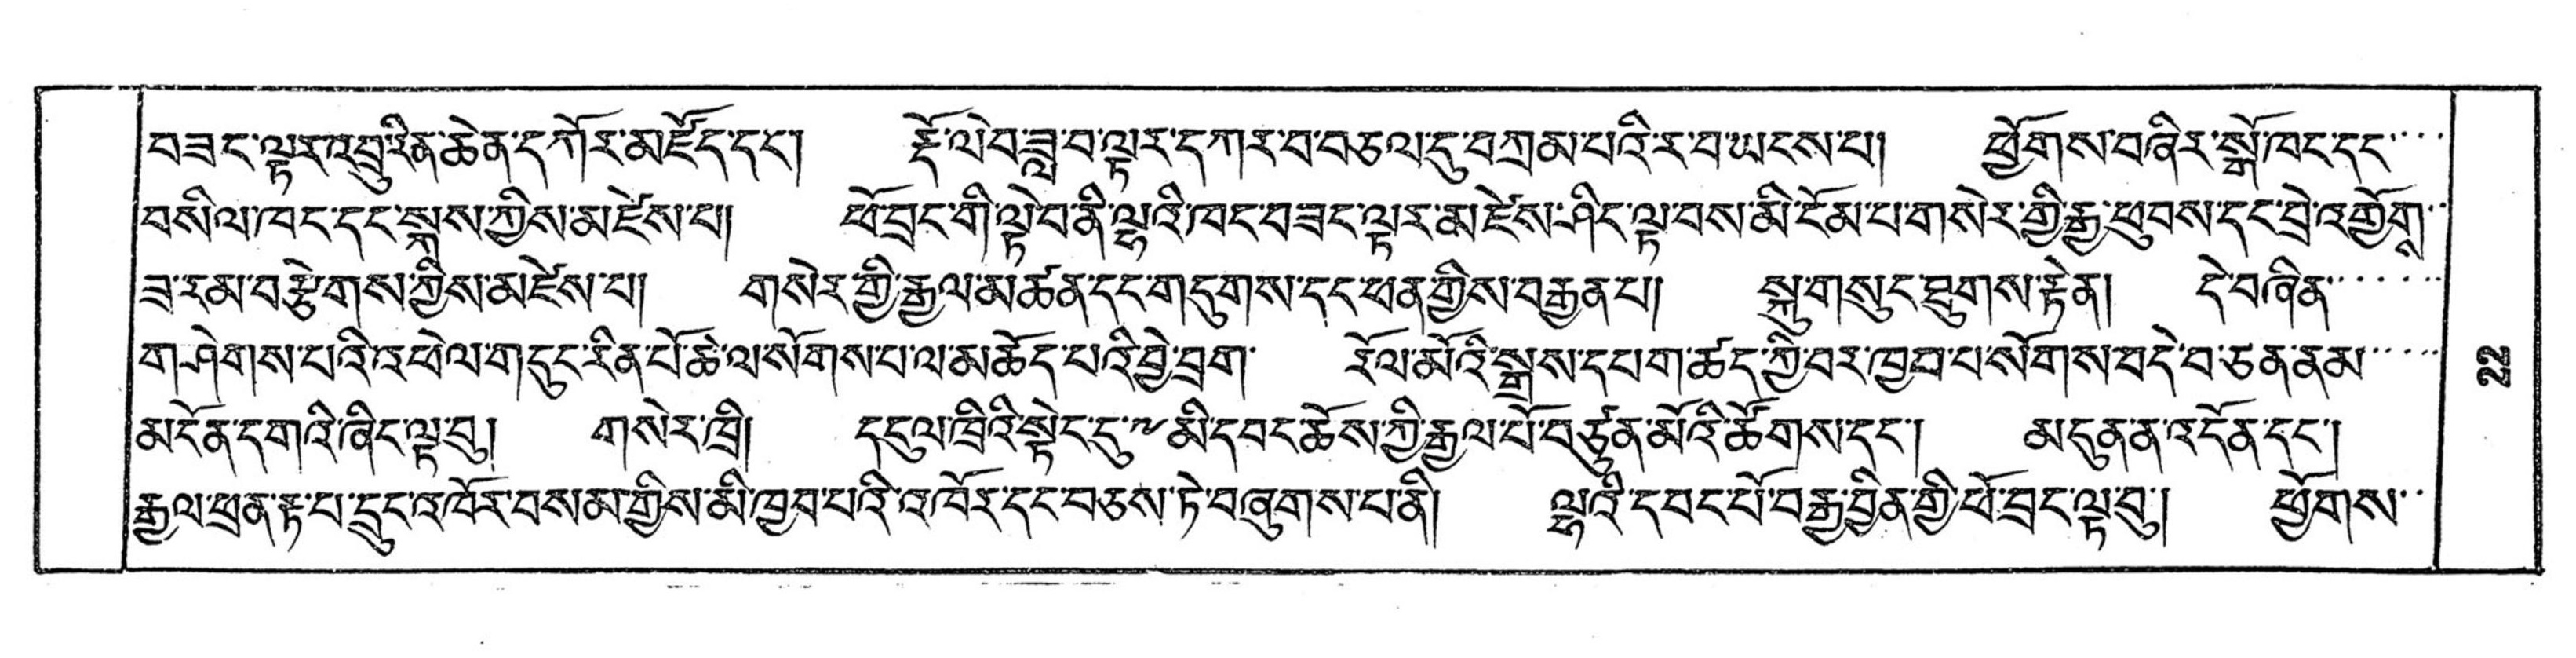 བཟང་ལྟར་འབྲུ་རིན་ཆེན་དཀོར་མཛོད་དང༌། རྡོ་ལེབ་ཟླ་བ་ལྟར་དཀར་བ་བཅལ་དུ་བཀྲམ་པའི་ར་བ་ཡངས་པ། ཕྱོགས་བཞིར་སྒོ་ཁང་དང་
བསིལ་ཁང་དང་སྐས་ཀྱིས་མཛེས་པ། ཕོ་བྲང་གི་ལྟེ་བ་ནི་ལྷའི་ཁང་བཟང་ལྟར་མཛེས་ཤིང་ལྟ་བས་མི་ངོམ་པ་གསེར་གྱི་རྒྱ་ཕུབས་དང་བྲེ་འགྱོགྲ་
ཟ་རམ་བརྩེགས་ཀྱིས་མཛེས་པ། གསེར་གྱི་རྒྱལ་མཚན་དང་གདུགས་དང་ཕན་གྱིས་བརྒྱན་པ། སྐུ་གསུང་ཐུགས་རྟེན། དེ་བཞིན་
གཤེགས་པའི་འཕེལ་གདུང་རིན་པོ་ཆེ་ལ་སོགས་པ་ལ་མཆོད་པའི་བྱེ་བྲག་ རོལ་མོའི་སྒྲས་དཔག་ཚད་ཀྱི་བར་ཁྱབ་པ་སོགས་བདེ་བ་ཅན་ནམ་
མངོན་དགའི་ཞིང་ལྟ་བུ། གསེར་ཁྲི། དངུལ་ཁྲིའི་སྟེང་དུ་མི་དབང་ཆོས་ཀྱི་རྒྱལ་པོ་བཙུན་མོའི་ཚོགས་དང༌། མདུན་ན་འདོན་དང༌།
རྒྱལ་ཕྲན་རྟ་པ་དྲུང་འཁོར་བསམ་གྱིས་མི་ཁྱབ་པའི་འཁོར་དང་བཅས་ཏེ་བཞུགས་པ་ནི། ལྷའི་དབང་པོ་བརྒྱ་བྱིན་གྱི་ཕོ་བྲང་ལྟ་བུ། ཕྱོགས་